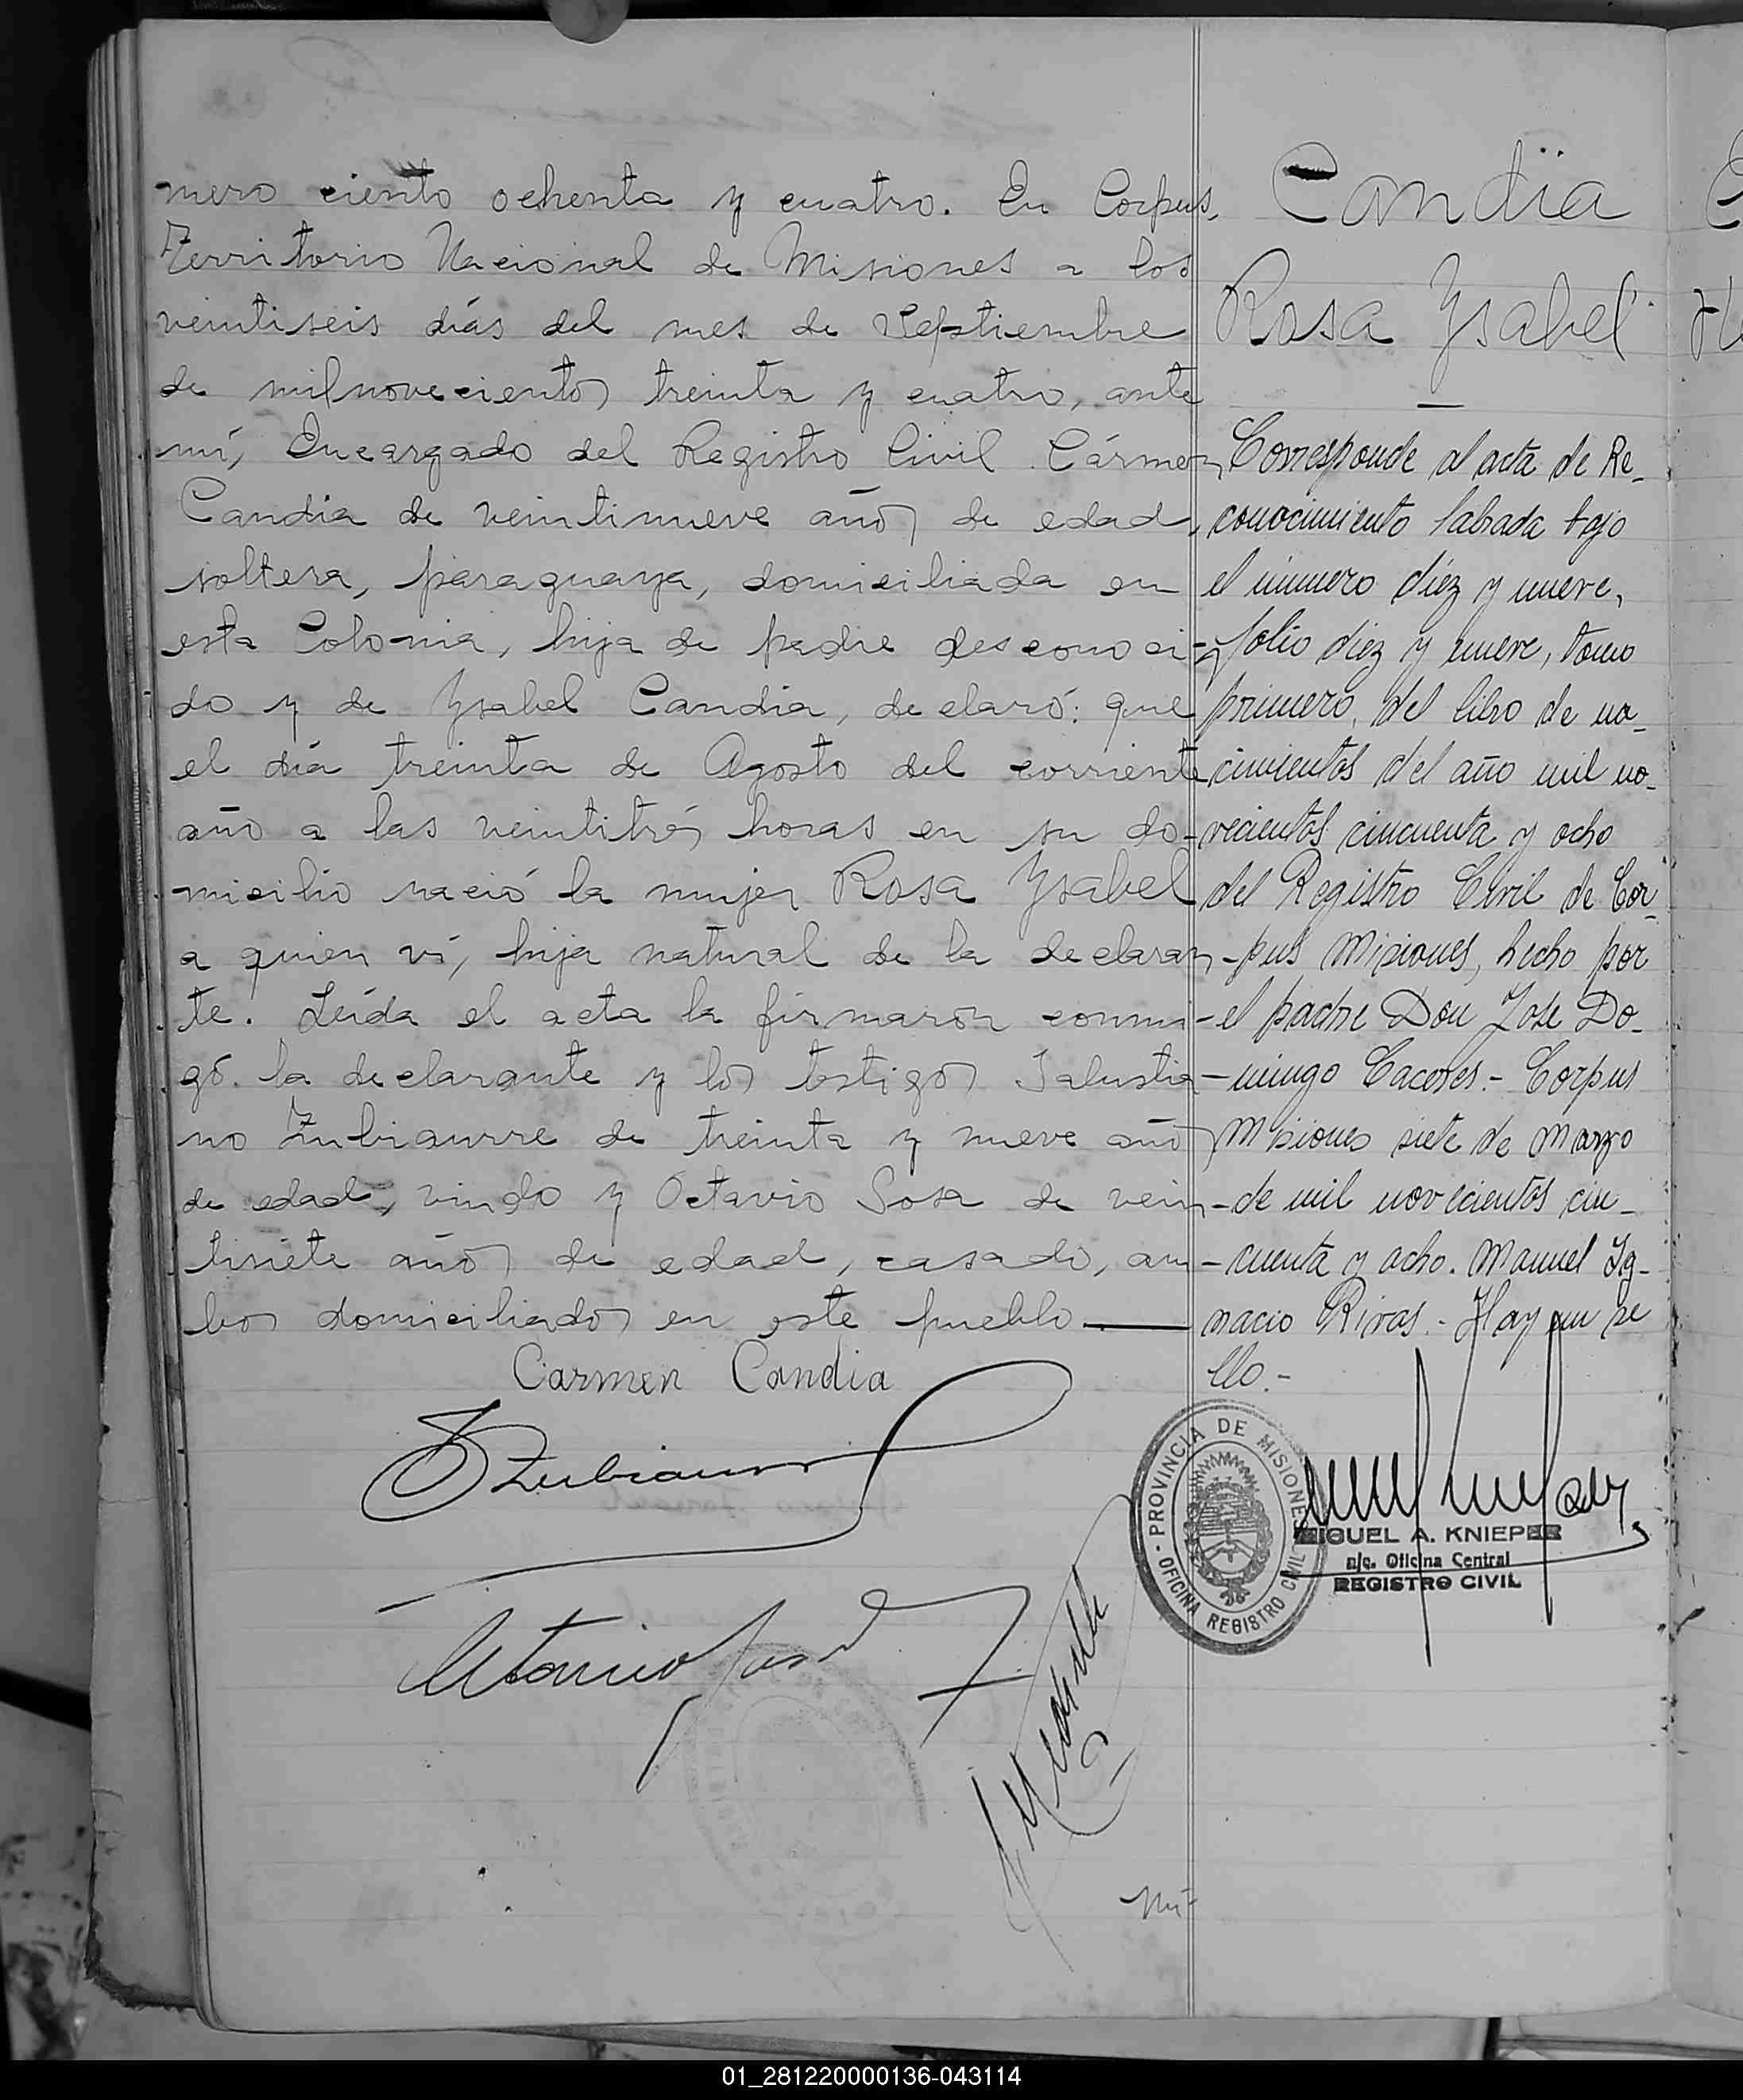 mero ciento ochenta y cuatro. En Corpus,
Territorio Nacional de Misiones a los
veintiseis días del mes de Septiembre
de milnovecientos treinta y cuatro, ante
mí, Encargado del Registro Civil Cármen
Candia de veintinueve años de edad,
soltera, paraguaya, domiciliada en
esta Colonia, hija de padre desconoci-
do y de Ysabel Candia, declaró: que
el día treinta de Agosto del corriente
año a las veintitrés horas en su do-
micilio nació la mujer Rosa Ysabel
a quien ví, hija natural de la declaran-
te. Leída el acta la firmaron conmi-
gó. la declarante y los testigos Salustia-
no Zubiaurre de treinta y nueve años
de edad, viudo y Octavio Sosa de vein-
tisiete años de edad, casado, am-
bos domiciliados en este pueblo
Carmen Candia
SZubiaurre
Octavio Sosa
Nú-
Candia
Rosa Ysabel
Corresponde al acta de Re-
conocimiento labrada bajo
el número diez y nueve,
folio diez y nueve, tomo
primero, del libro de na-
cimientos del año mil no-
vecientos cincuenta y ocho
del Registro Civil de Cor-
pus Misiones, hecho por
el padre Don Jose Do-
mingo Caceres.- Corpus
Misiones siete de Marzo
de mil novecientos cin-
cuenta y ocho. Manuel Ig-
nacio Rivas.- Hay un se
llo.-
PROVINCIA DE MISIONES
OFICINA REGISTRO CIVIL
MIGUEL A. KNIEPER
a/c. Oficina Central
REGISTRO CIVIL
01_281220000136-043114